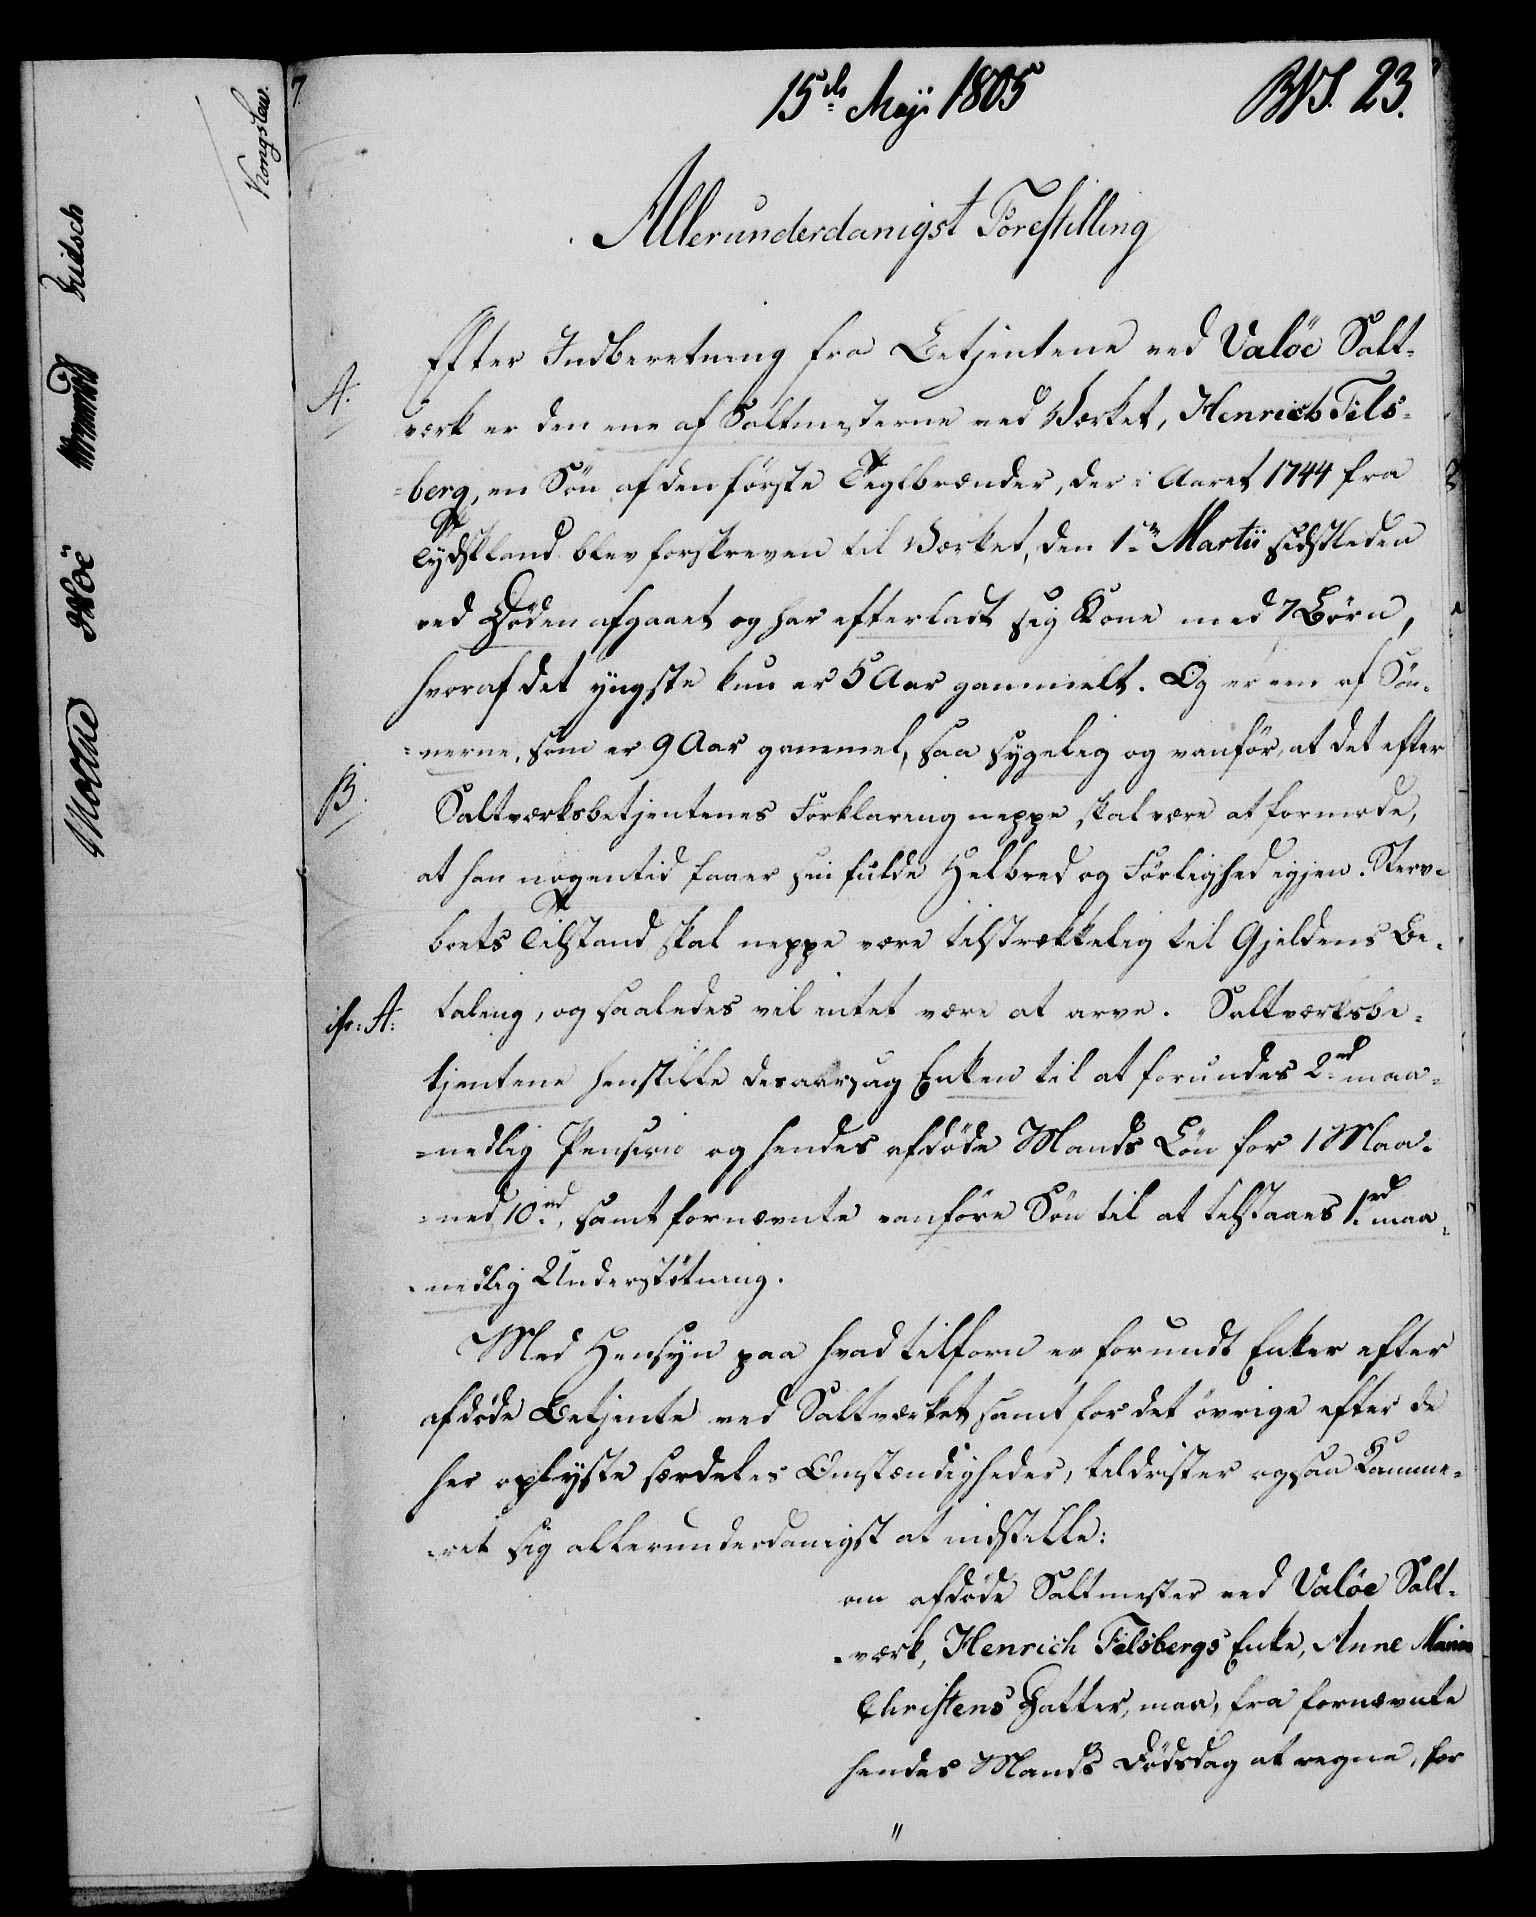 15de Maji 1805
No. 23.
Allerunderdanigst Forestilling
A.
Efter Indberetning fra Betjentene ved Valöe Salt-
værk er den ene af Saltmesterne ved Værket, Henrich Fels-
berg, en Sön af den förste Teglbrænder, der i Aaret 1744 fra
Tydskland blev forskreven til Værket, den 1ste Martii sidstleden
ved Döden afgaaet og har efterladt sig Kone med 7 Börn,
hvoraf det yngste kun er 5 Aar gammelt. Og er een af Sön-
nerne, som er 9 Aar gammel, saa sygelig og vanför, at det efter
B.
Saltværksbetjentenes Forklaring neppe skal være at formode,
at han nogentid faaer sin fulde Helbred og Förlighed igjen. Sterv-
boets Tilstand skal neppe være tilstrækkelig til Gjeldens Be-
ifr: A:
taling, og saaledes vil intet være at arve. Saltværksbe-
tjentene henstille desaarsag Enken til at forundes 2 rd maa-
nedlig Pension og hendes afdöde Mands Lön for 1 Maa-
ned 10 rd, samt fornævnte vanföre Sön til at tilstaaes 1 rd maa-
nedlig Understötning.
Med Hensyn paa hvad tilforn er forundt Enker efter
afdöde Betjente ved Saltværket samt for det övrige efter de
her oplyste særdeles Omstændigheder, tildrister ogsaa Kamme-
ret sig allerunderdanigst at indstille:
om afdöde Saltmester ved Valöe Salt-
værk, Henrich Felsbergs Enke, Anne Maria
Christens Datter, maa, fra fornævnte
hendes Mands Dödsdag at regne, for
"
Kongslew.